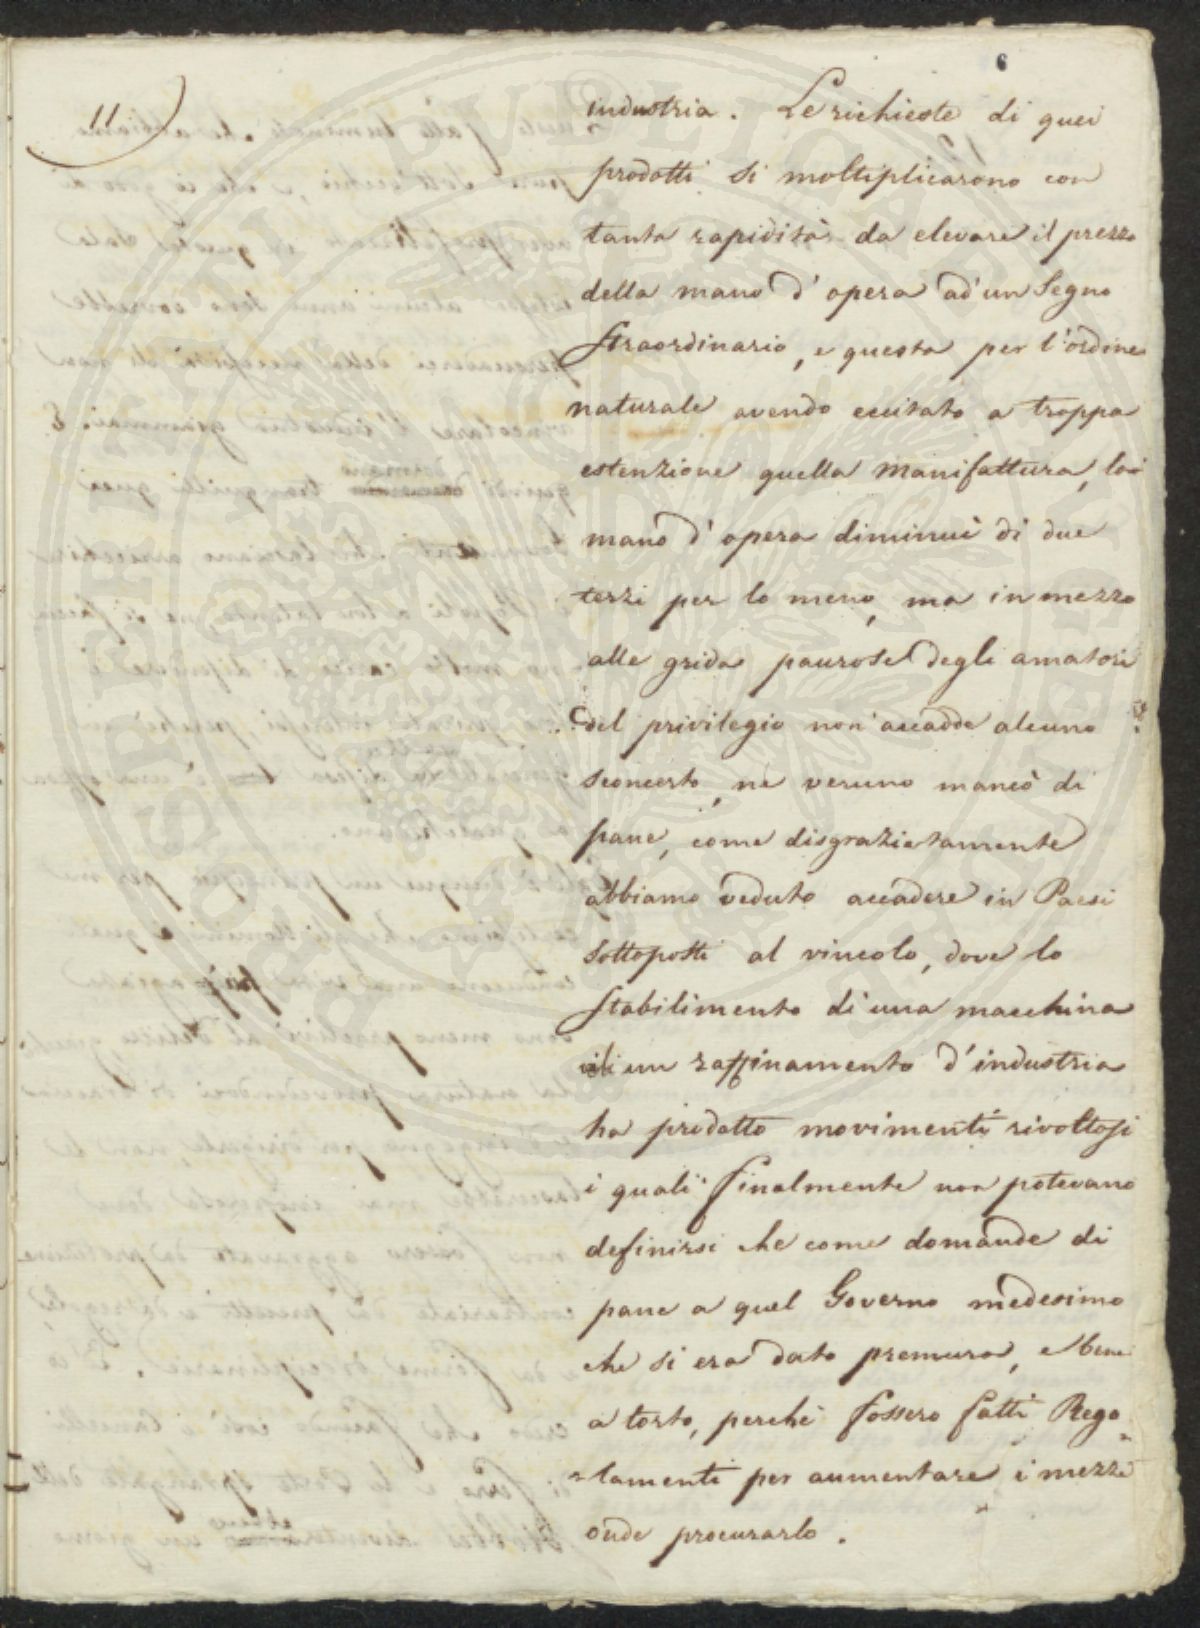 6
11
industria. Le richieste di quei
prodotti si moltiplicarono con
tanta rapidità da elevare il prezzo
della mano d'opera ad un Segno
straordinario, e questa per l'ordine
naturale avendo eccitato a troppa
estenzione quella Manifattura, la
mano d'opera diminuì di due
terzi per lo meno, ma in mezzo
alle grida paurose degli amatori
del privilegio non accadde alcuno
sconcerto, nè veruno mancò di
pane, come disgraziatamente
abbiamo veduto accadere in Paesi
sottoposti al vincolo, dove lo
stabilimento di una macchina
di un raffinamento d'industria
ha prodotto movimenti rivoltosi
i quali finalmente non potevano
definirsi che come domande di
pane a quel Governo medesimo
che si era dato premura, e bene
a torto, perchè fossero fatti Rego-
-lamenti per aumentare i mezzi
onde procurarlo.